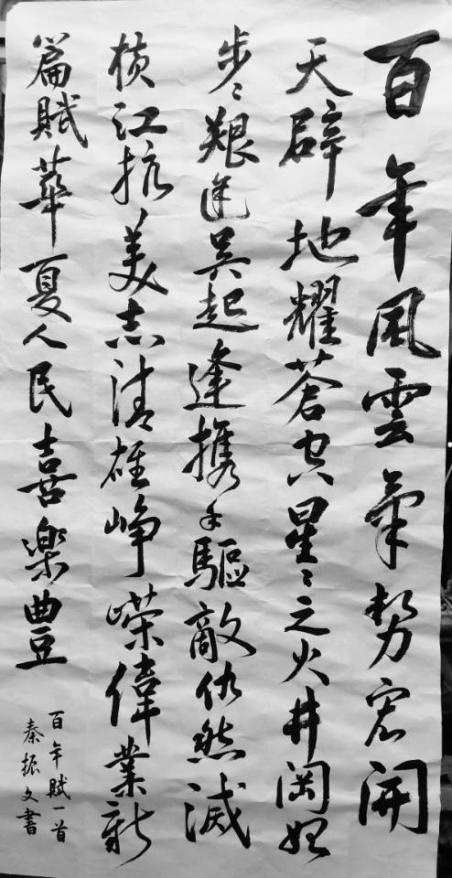 百年風雲氣勢宏開
天辟地耀蒼穹星々之火井岡始
步々艱途吳起逢携手驅敵仇然滅
橫江抗美志清雄崢嶸偉業新
篇賦華夏人民喜樂豊
百年賦一首
秦振文書